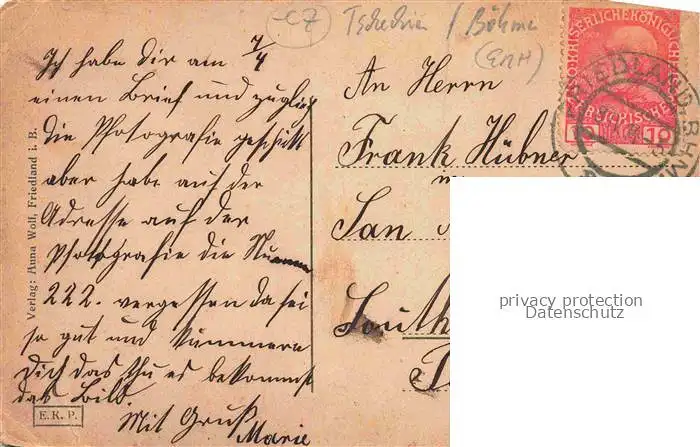 CZ Tschechien / Böhme
(GMH)
Ich habe Dir am 7/4
einen Brief und zugleich
die Photografie geschickt
aber habe auf der
Adresse auf der
Photografie die Nummer
222. vergessen da sei
so gut und kummere
Dich das thu es bekommst
das Bild.
Mit Gruß
Marie
An Herrn
Frank Hübner
San
South
KAISERLICHE KÖNIGLICHE
ÖSTERREICHISCHE
10 10
FRIEDLAND BÖHMEN
Verlag: Anna Woll, Friedland i. B.
E. K. P.
privacy protection
Datenschutz